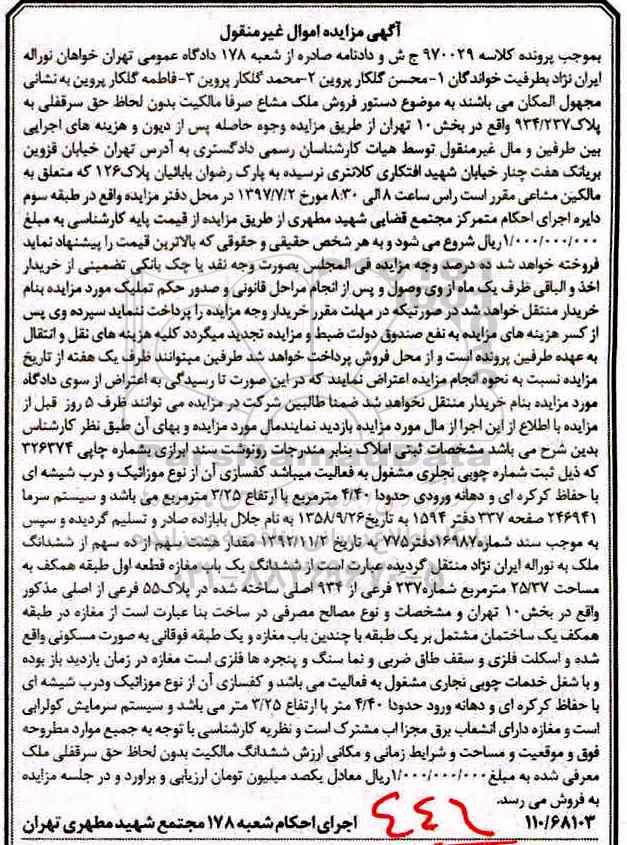 آگهی مزایده اموال غیرمنقول
بموجب پرونده کلاسه ۹۷۰۰۲۹ ج ش و دادنامه صادره از شعبه ۱۷۸ دادگاه عمومی تهران خواهان نوراله
ایران نژاد بطرفیت خواندگان ۱-محسن گلکار پروین ۲-محمد گلکار پروین ۳-فاطمه گلکار پروین به نشانی
مجهول المکان می باشند به موضوع دستور فروش ملک مشاع صرفا مالکیت بدون لحاظ حق سرقفلی به
پلاک۹۳۴/۲۳۷ واقع در بخش۱۰ تهران از طریق مزایده وجوه حاصله پس از دیون و هزینه های اجرایی
بین طرفین و مال غیرمنقول توسط هیات کارشناسان رسمی دادگستری به آدرس تهران خیابان قزوین
بریانک هفت چنار خیابان شهید افتکاری کلانتری نرسیده به پارک رضوان بابائیان پلاک۱۲۶ که متعلق به
مالکین مشاعی مقرر است راس ساعت ۸ الی ۸:۳۰ مورخ ۱۳۹۷/۷/۲ در محل دفتر مزایده واقع در طبقه سوم
دایره اجرای احکام متمرکز مجتمع قضایی شهید مطهری از طریق مزایده از قیمت پایه کارشناسی به مبلغ
۱/۰۰۰/۰۰۰/۰۰۰ریال شروع می شود و به هر شخص حقیقی و حقوقی که بالاترین قیمت را پیشنهاد نماید
فروخته خواهد شد ۱۰درصد وجه مزایده فی المجلس بصورت وجه نقد یا چک بانکی تضمینی از خریدار
اخذ و الباقی ظرف یک ماه از وی وصول و پس از انجام مراحل قانونی و صدور حکم تملیک مورد مزایده بنام
خریدار منتقل خواهد شد در صورتیکه در مهلت مقرر خریدار وجه مزایده را پرداخت ننماید سپرده وی پس
از کسر هزینه های مزایده به نفع صندوق دولت ضبط و مزایده تجدید میگردد کلیه هزینه های نقل و انتقال
به عهده طرفین پرونده است و از محل فروش پرداخت خواهد شد طرفین میتوانند ظرف یک هفته از تاریخ
مزایده نسبت به نحوه انجام مزایده اعتراض نمایند که در این صورت تا رسیدگی به اعتراض از سوی دادگاه
مورد مزایده بنام خریدار منتقل نخواهد شد ضمنا طالبین شرکت در مزایده می توانند ظرف ۵ روز قبل از
مزایده با اطلاع از این اجرا از مال مورد مزایده بازدید نمایندمال مورد مزایده و بهای آن طبق نظر کارشناس
بدین شرح می باشد مشخصات ثبتی املاک بنابر مندرجات رونوشت سند ابرازی بشماره چاپی ۳۲۶۳۷۴
که ذیل ثبت شماره چوبی نجاری مشغول به فعالیت میباشد کفسازی آن از نوع موزائیک و درب شیشه ای
با حفاظ کرکره ای و دهانه ورودی حدودا ۴/۴۰ مترمربع با ارتفاع ۳/۲۵ مترمربع می باشد و سیستم سرما
۲۴۶۹۴۱ صفحه ۳۳۷ دفتر ۱۵۹۴ به تاریخ۱۳۵۸/۹/۲۶ به نام جلال بابازاده صادر و تسلیم گردیده و سپس
به موجب سند شماره۱۶۹۸۷دفتر۷۷۵ به تاریخ ۱۳۹۲/۱۱/۲ مقدار هشت سهم از ده سهم از ششدانگ
ملک به نوراله ایران نژاد منتقل گردیده عبارت است از ششدانگ یک باب مغازه قطعه اول طبقه همکف به
مساحت ۲۵/۳۷ مترمربع شماره۲۳۷ فرعی از ۹۳۴ اصلی ساخته شده در پلاک۵۵ فرعی از اصلی مذکور
واقع در بخش۱۰ تهران و مشخصات و نوع مصالح مصرفی در ساخت بنا عبارت است از مغازه در طبقه
همکف یک ساختمان مشتمل بر یک طبقه با چندین باب مغازه و یک طبقه فوقانی به صورت مسکونی واقع
شده و اسکلت فلزی و سقف طاق ضربی و نما سنگ و پنجره ها فلزی است مغازه در زمان بازدید باز بوده
و با شغل خدمات چوبی نجاری مشغول به فعالیت می باشد و کفسازی آن از نوع موزائیک ودرب شیشه ای
با حفاظ کرکره ای و دهانه ورود حدودا ۴/۴۰ متر با ارتفاع ۳/۲۵ متر می باشد و سیستم سرمایش کولرابی
است و مغازه دارای انشعاب برق مجزا اب مشترک است و نظریه کارشناسی با توجه به جمیع موارد مطروحه
فوق و موقعیت و مساحت و شرایط زمانی و مکانی ارزش ششدانگ مالکیت بدون لحاظ حق سرقفلی ملک
معرفی شده به مبلغ۱/۰۰۰/۰۰۰/۰۰۰ریال معادل یکصد میلیون تومان ارزیابی و براورد و در جلسه مزایده
به فروش می رسد.
۱۱۰/۶۸۱۰۳ اجرای احکام شعبه ۱۷۸ مجتمع شهید مطهری تهران